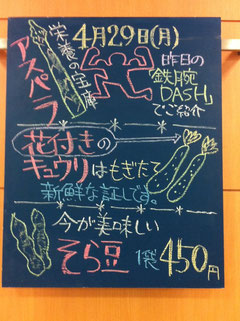 4月29日(月)
アスパラ
栄養の宝庫
昨日の
「鉄腕
DASH」
でご紹介
花付きの
キュウリはもぎたて
新鮮な証しです。
今が美味しい
そら豆 1袋450円